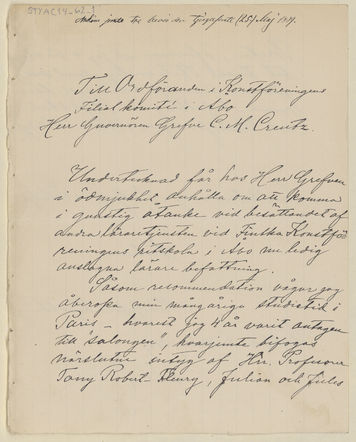 STYAC14_62_1
den Tjugufemte (25) Maj 1889.
Till Ordföranden i Konstföreningens
Filialkomité i Åbo
Herr Guvernören Grefve C. M. Creutz.
Undertecknad får hos Herr Grefven
i ödmjukhet anhålla om att komma
i gunstig åtanke vid besättandet af
andra läraretjensten vid Finska Konstfö-
reningens ritskola i Åbo nu ledig
anslagna lärare befattning.
Såsom recommendation vågar jag
åberopa min mångåriga studietid i
Paris – hvarest jag 4 år varit antagen
till "salongen", hvarjemte bifogas
närslutne intyg af Hrr. Professorer
Tony Robert-Fleury, Julian och Jules